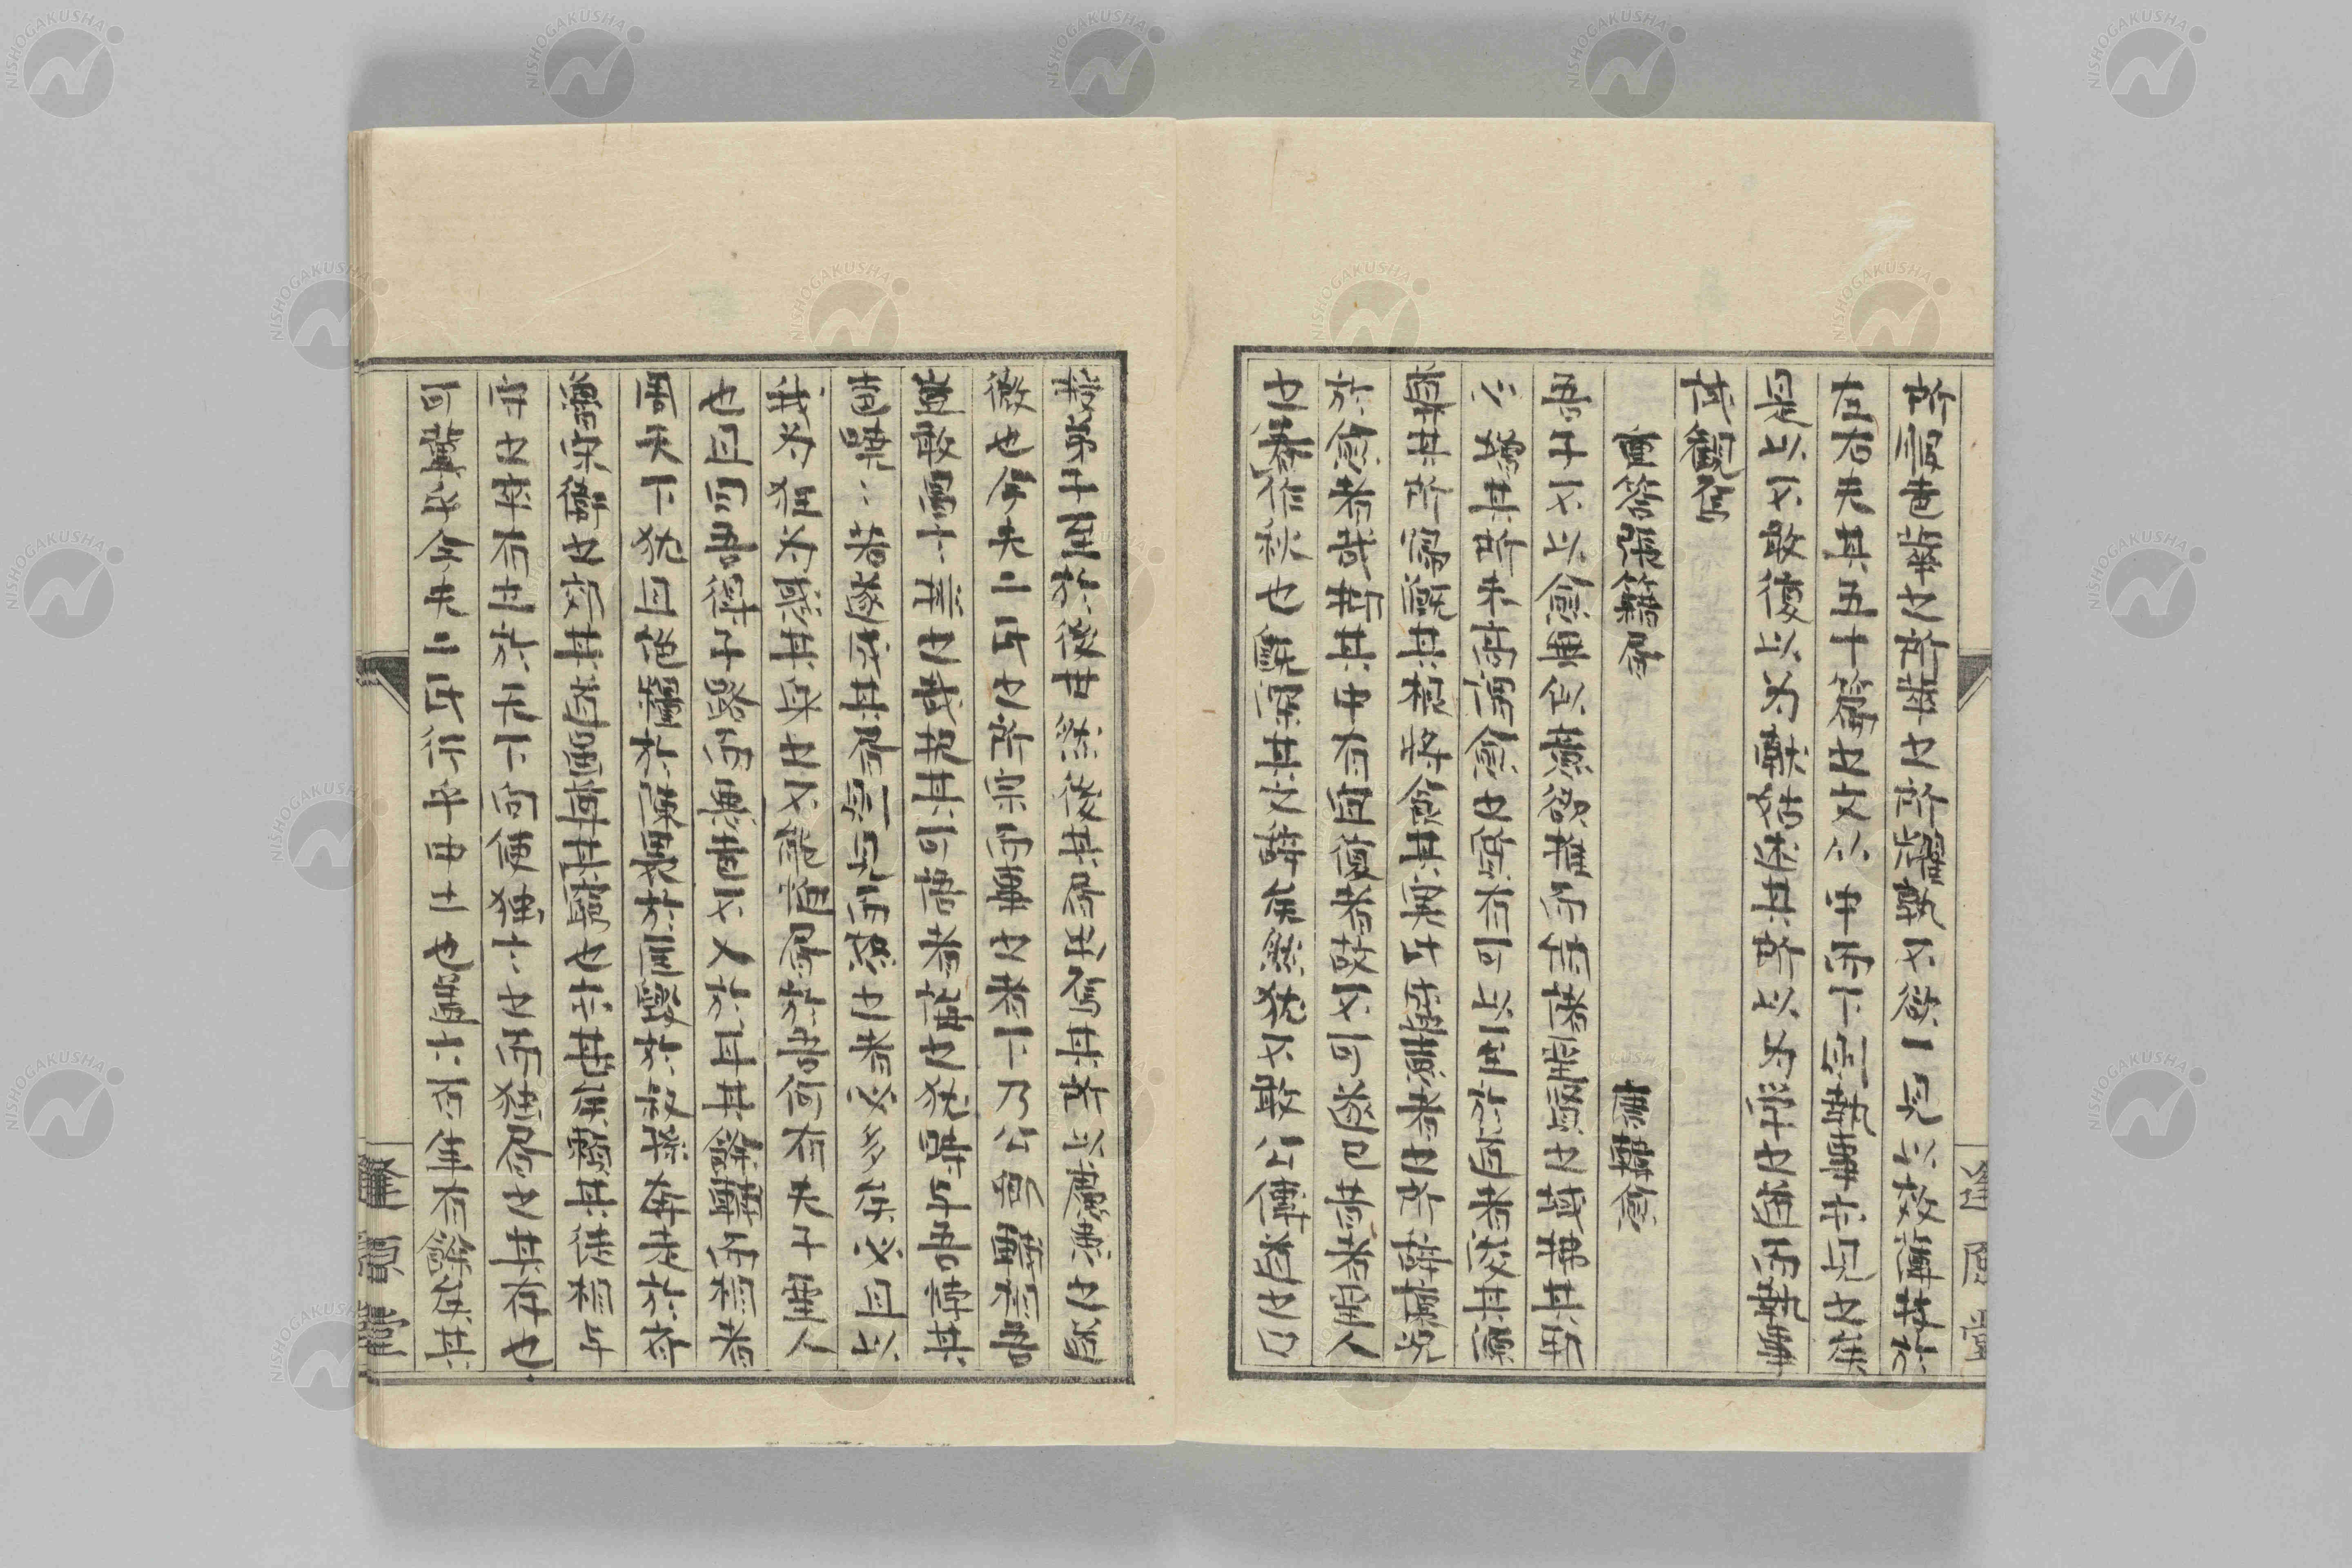 是以不敢復以为獻姑述其所以为學之
試觀焉
重答張籍書　韓愈
吾子不以愈無似意欲推而納諸聖賢之域拂其邪
心增其所未高謂愈之質有可以至於道者浚其源
導其所歸溉其根將食其實此盛德者之所辭讓況
於愈者哉抑其中有宜復者故不可遂已昔者聖人
之作春秋也既深其文辭矣然猶不敢公傳道之口
授弟子至於後世然後其書出焉其所以慮患之道
微也今夫二氏之所宗而事之者下乃公卿輔相吾
豈敢昌言排之哉擇其可語者誨之猶時與吾悖其
聲嘵〻若遂成其書則見而怒之者必多矣必且以
我为狂为惑其身之不能恤書於吾何有夫子聖人
也且曰吾得子路而惡聲不入於耳其餘輔而相者
周天下猶且絕糧於陳畏於匡毀於叔孫奔走於齊
魯宋衛之郊其道雖尊其窮也亦甚矣賴其徒相與
守之卒有立於天下向使獨言之而獨書之其存也
可冀乎今夫二氏行乎中土也蓋六百年有餘矣其